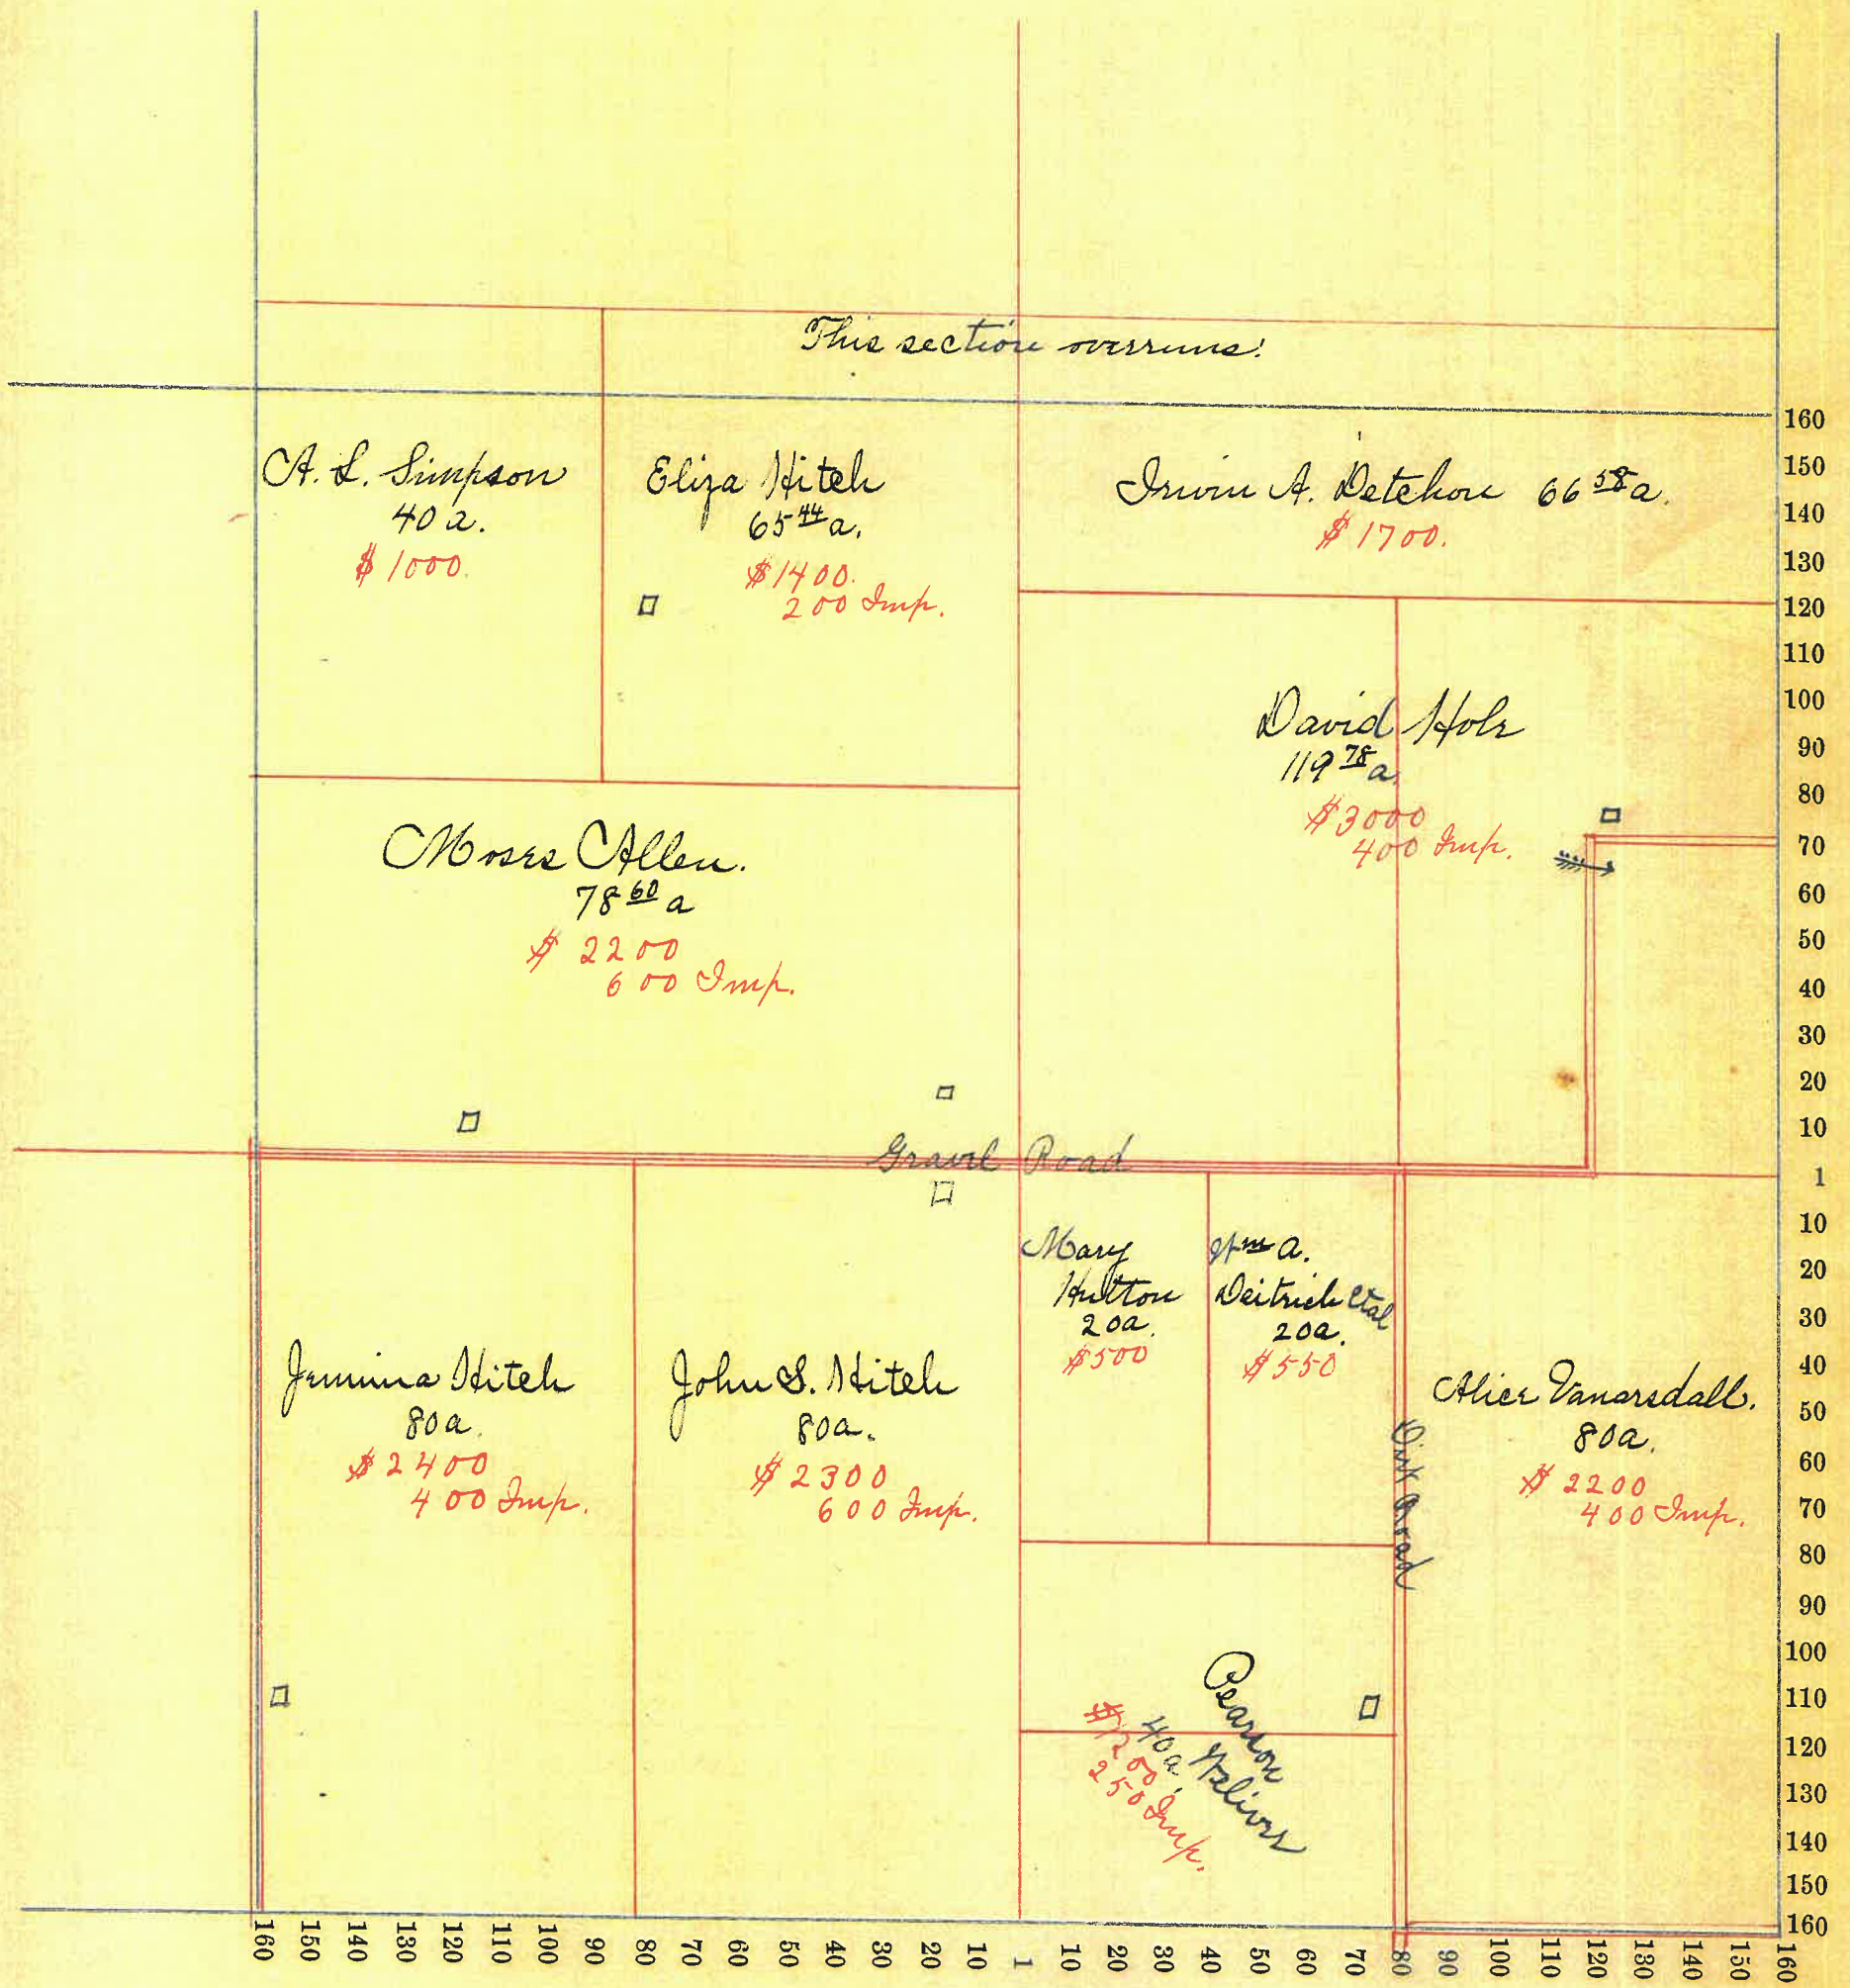 This section overruns!
A. L. Simpson
40 a.
$1000.
Eliza Hitch
65 44 a.
$1400.
200 Imp.
Irwin A. Detchon 66 58 a.
$1700.
David Holz
119 78 a
$3000
400 Imp.
Moses Allen.
78 60 a
$2200
600 Imp.
Gravel Road
Jemima Hitch
80a.
$2400
400 Imp.
John S. Hitch
80a.
$2300
600 Imp.
Mary
Hutton
20a.
$500
Wm A.
Deitrich etal
20a.
$550
Dirt Road
Alice Vanarsdall.
80a.
$2200
400 Imp.
Pearson
40a.
$1200
250 Imp.
160
150
140
130
120
110
100
90
80
70
60
50
40
30
20
10
1
10
20
30
40
50
60
70
80
90
100
110
120
130
140
150
160
160 150 140 130 120 110 100 90 80 70 60 50 40 30 20 10 1 10 20 30 40 50 60 70 80 90 100 110 120 130 140 150 160